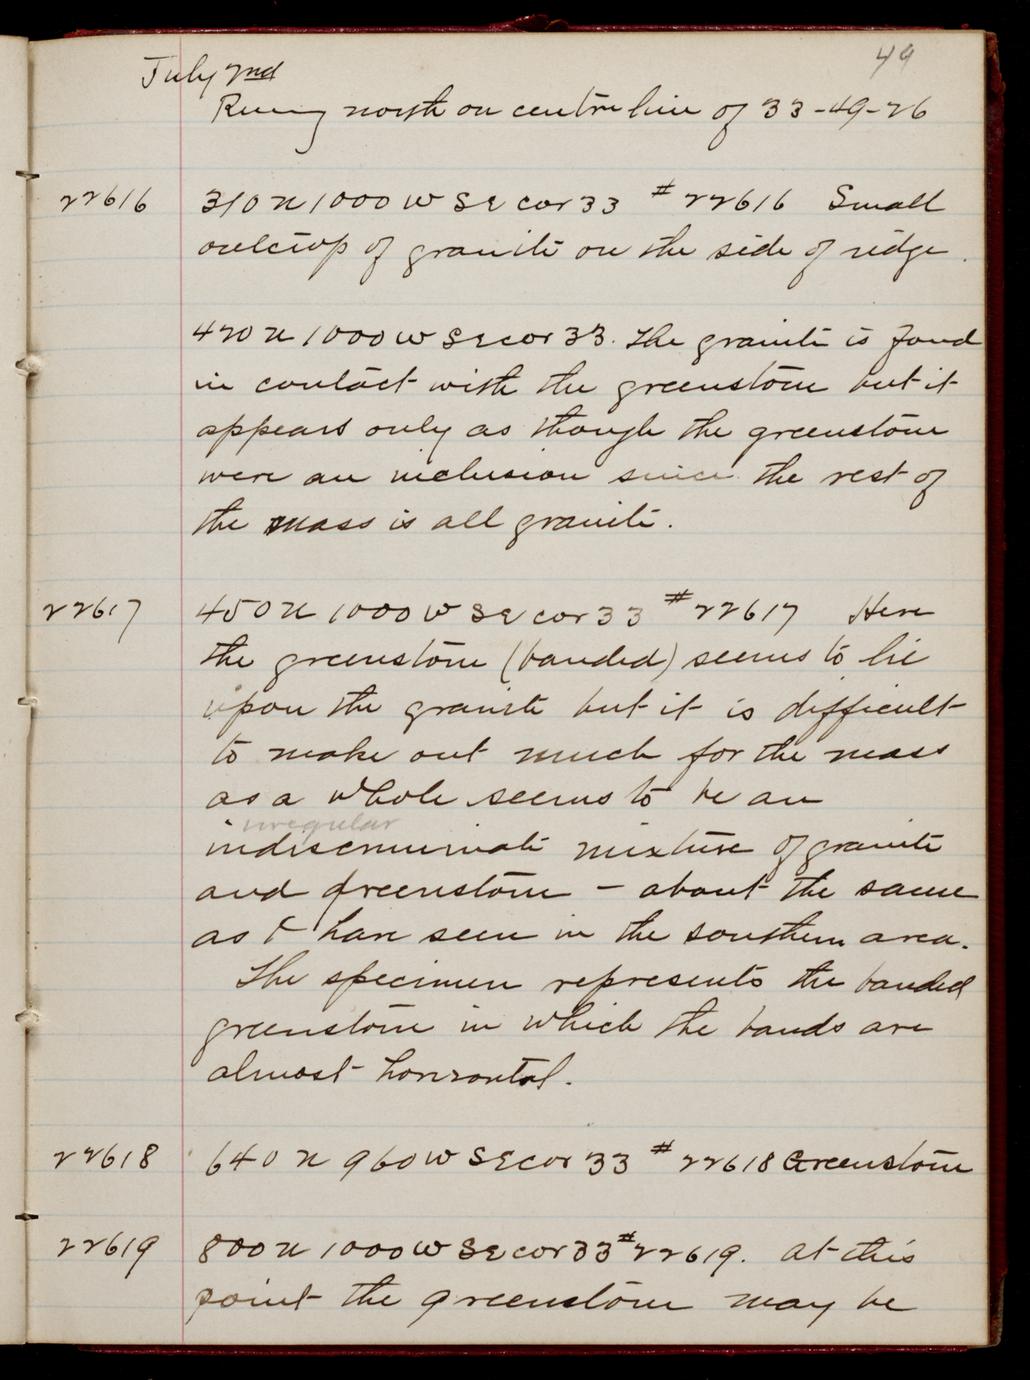 49
July 2nd
Runing north on centre line of 33-49-26
22616 310 N 1000 W SE cor 33 #22616 Small
outcrop of granite on the side of ridge.
420 N 1000 W SE cor 33. The granite is found
in contact with the greenstone but it
appears only as though the greenstone
were an inclusion since the rest of
the mass is all granite.
22617 450 N 1000 W SE cor 33 #22617 Here
the greenstone (banded) seems to lie
upon the granite but it is difficult
to make out much for the mass
as a whole seems to be an
irregular
indiscriminate mixture of granite
and greenstone - about the same
as I have seen in the southern area.
The specimen represents the banded
greenstone in which the bands are
almost horizontal.
22618 640 N 960 W SE cor 33 #22618 Greenstone
22619 800 N 1000 W SE cor 33 #22619. At this
point the greenstone may be